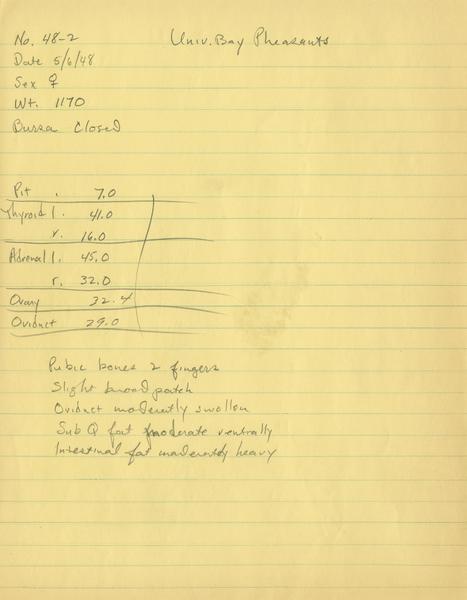 No. 48-2 Univ. Bay Pheasants
Date 5/6/48
Sex ♀
Wt. 1170
Bursa Closed
Pit . 7.0
Thyroid l. 41.0
r. 16.0
Adrenal l. 45.0
r. 32.0
Ovary 32.4
Oviduct 29.0
Pubic bones 2 fingers
Slight brood patch
Oviduct moderately swollen
Sub Q fat moderate ventrally
Intestinal fat moderately heavy